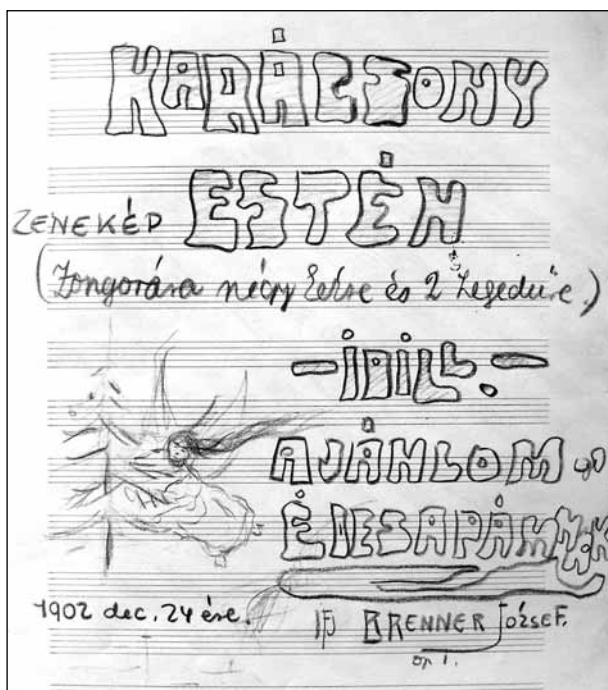 KARÁCSONY
ESTÉN
ZENEKÉP
(Zongorára négy kézre és 2 hegedűre.)
— IDILL. —
AJÁNLOM
ÉDESAPÁMNAK
1902 dec. 24 ére.
ifj BRENNER JÓZSEF.
op 1.